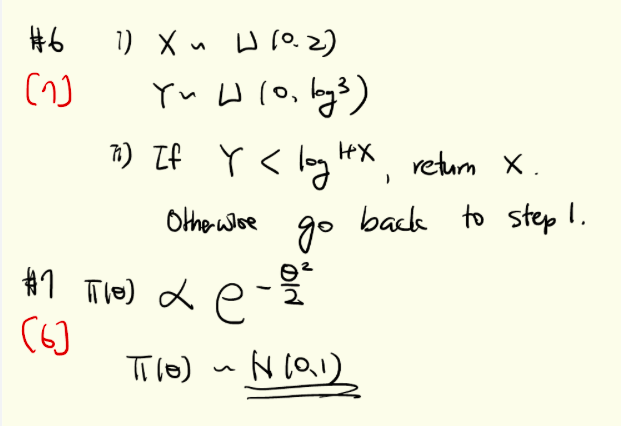 #6 1) X ~ U(0.2)
[7] Y ~ U(0, log3)
ii) If Y < log 1+X, return X.
Otherwise go back to step 1.
#7 π(θ) ∝ e^{-θ²/2}
[6]
π(θ) ~ N(0,1)